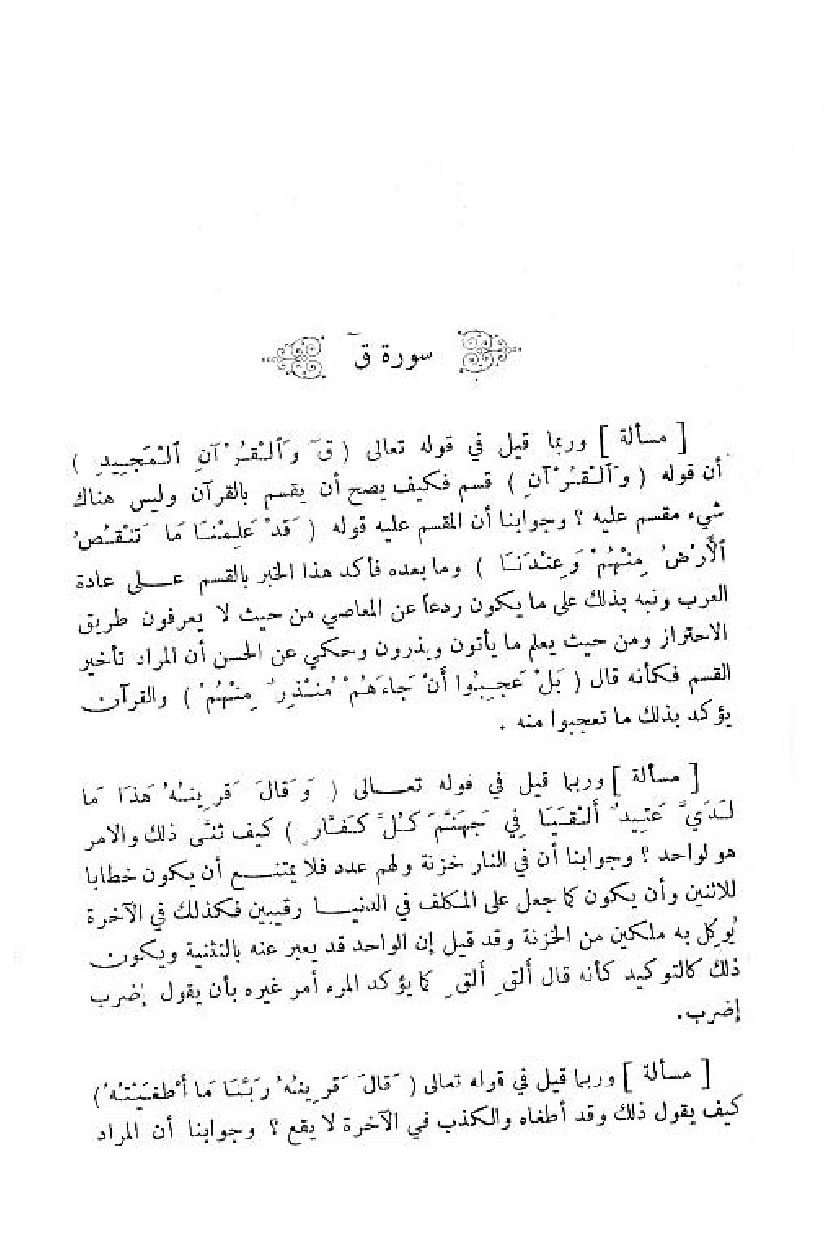 سورة قَ
[ مسألة ] وربما قيل في قوله تعالى ( قَ وَٱلْقُرْآنِ ٱلْمَجِيدِ )
أن قوله ( وَٱلْقُرْآنِ ) قسم فكيف يصح أن يقسم بالقرآن وليس هناك
شيء مقسم عليه ؟ وجوابنا أن المقسم عليه قوله ( قَدْ عَلِمْنَا مَا تَنْقُصُ
ٱلْأَرْضُ مِنْهُمْ وَعِنْدَنَا ) وما بعده فأكد هذا الخبر بالقسم على عادة
العرب ونبه بذلك على ما يكون ردعاً عن المعاصي من حيث لا يعرفون طريق
الاحتراز ومن حيث يعلم ما يأتون ويذرون وحكي عن الحسن أن المراد تأخير
القسم فكأنه قال ( بَلْ عَجِبُوا أَنْ جَاءَهُمْ مُنْذِرٌ مِنْهُمْ ) والقرآن
يؤكد بذلك ما تعجبوا منه .
[ مسألة ] وربما قيل في قوله تعالى ( وَقَالَ قَرِينُهُ هَذَا مَا
لَدَيَّ عَتِيدٌ أَلْقِيَا فِي جَهَنَّمَ كُلَّ كَفَّارٍ ) كيف ثنَّى ذلك والامر
هو لواحد ؟ وجوابنا أن في النار خزنة ولهم عدد فلا يمتنع أن يكون خطابا
للاثنين وأن يكون كما جعل على المكلف في الدنيا رقيبين فكذلك في الآخرة
يُوكل به ملكين من الخزنة وقد قيل إن الواحد قد يعبر عنه بالتثنية ويكون
ذلك كالتوكيد كأنه قال أَلقِ أَلقِ كما يؤكد المرء أمر غيره بأن يقول إضرب
إضرب.
[ مسألة ] وربما قيل في قوله تعالى ( قَالَ قَرِينُهُ رَبَّنَا مَا أَطْغَيْتُهُ )
كيف يقول ذلك وقد أطغاه والكذب في الآخرة لا يقع ؟ وجوابنا أن المراد